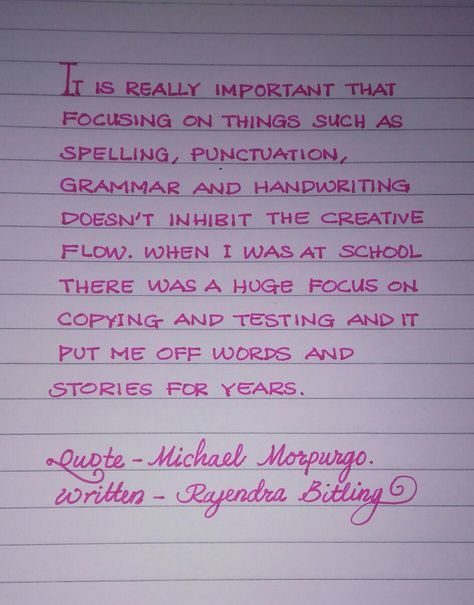 IT IS REALLY IMPORTANT THAT
FOCUSING ON THINGS SUCH AS
SPELLING, PUNCTUATION,
GRAMMAR AND HANDWRITING
DOESN'T INHIBIT THE CREATIVE
FLOW. WHEN I WAS AT SCHOOL
THERE WAS A HUGE FOCUS ON
COPYING AND TESTING AND IT
PUT ME OFF WORDS AND
STORIES FOR YEARS.
Quote - Michael Morpurgo.
Written - Rajendra Bitling